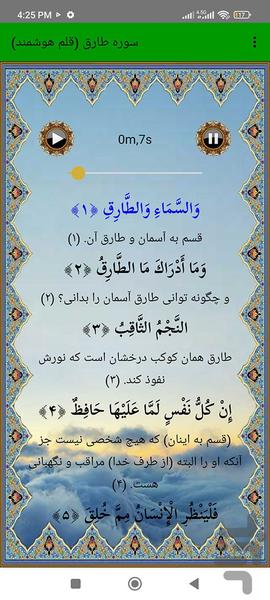 4:25 PM
سوره طارق (قلم هوشمند)
0m,7s
وَالسَّمَاءِ وَالطَّارِقِ ﴿۱﴾
قسم به آسمان و طارق آن. (۱)
وَمَا أَدْرَاكَ مَا الطَّارِقُ ﴿۲﴾
و چگونه توانی طارق آسمان را بدانی؟ (۲)
النَّجْمُ الثَّاقِبُ ﴿۳﴾
طارق همان کوکب درخشان است که نورش
نفوذ کند. (۳)
إِنْ كُلُّ نَفْسٍ لَمَّا عَلَيْهَا حَافِظٌ ﴿۴﴾
(قسم به اینان) که هیچ شخصی نیست جز
آنکه او را البته (از طرف خدا) مراقب و نگهبانی
هست. (۴)
فَلْيَنْظُرِ الْإِنْسَانُ مِمَّ خُلِقَ ﴿۵﴾